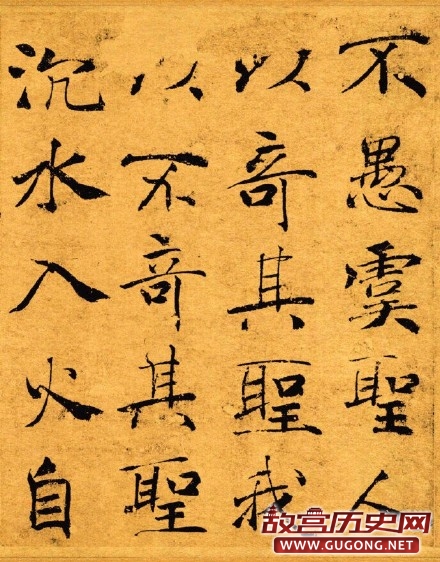 不愚虞聖人
以竒其聖我
以不竒其聖
沉水入火自
故宫历史网
WWW.GUGONG.NET